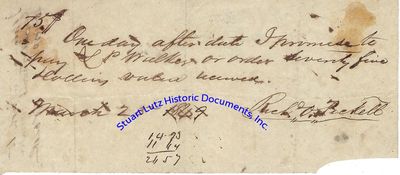 75$
One day after date I promise to
pay L P Walker or order seventy five
Dollars value received.
March 2 1849 Rich'd
Stuart Lutz Historic Documents, Inc.
2657